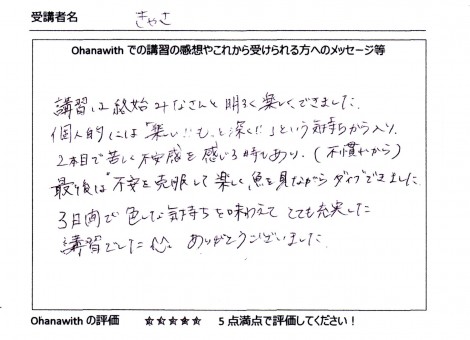 受講者名 きゃさ
Ohanawith での講習の感想やこれから受けられる方へのメッセージ等
講習は終始みなさんと明るく楽しくできました。
個人的には「楽しい!!もっと深く!!」という気持ちから入り、
2本目で苦しく不安感を感じる時もあり、(不慣れから)
最後は"不安を克服して楽しく魚を見ながらダイブできました
3日間で色んな気持ちを味わえて とても充実した
講習でした ありがとうございました
Ohanawith の評価 ☆☆☆☆☆ 5点満点で評価してください！